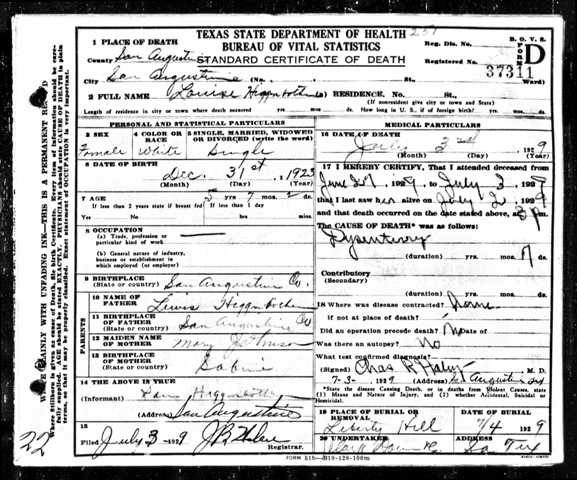 TEXAS STATE DEPARTMENT OF HEALTH
BUREAU OF VITAL STATISTICS
STANDARD CERTIFICATE OF DEATH
B. O. V. S.
FORM D
Reg. Dis. No.
Registered No. 37311
1 PLACE OF DEATH
County San Augustine
City San Augustine (No. St., Ward)
2 FULL NAME Louise Higginbotham RESIDENCE. No. St.
(If nonresident give city or town and State)
Length of residence in city or town where death occurred yrs. mos. ds. How long in U. S., if of foreign birth? yrs. mos. ds.
PERSONAL AND STATISTICAL PARTICULARS
3 SEX 4 COLOR OR RACE 5 SINGLE, MARRIED, WIDOWED OR DIVORCED (write the word)
Female White Single
6 DATE OF BIRTH
Dec. 31st, 1923
(Month) (Day) (Year)
7 AGE 5 yrs. mos. ds.
If less than 2 years state if breast fed If less than 1 day
Yes No hrs. min.
8 OCCUPATION
(a) Trade, profession or particular kind of work
(b) General nature of industry, business or establishment in which employed (or employer)
9 BIRTHPLACE
(State or country) San Augustine Co.
PARENTS
10 NAME OF FATHER Lewis
11 BIRTHPLACE OF FATHER
(State or country) San Augustine Co
12 MAIDEN NAME OF MOTHER Mary Johnson
13 BIRTHPLACE OF MOTHER
(State or country) Sabine
14 THE ABOVE IS TRUE
(Informant)
(Address) San Augustine
15
Filed July 3 1929 Registrar.
MEDICAL PARTICULARS
16 DATE OF DEATH
July 3rd 1929
(Month) (Day) (Year)
17 I HEREBY CERTIFY, That I attended deceased from
June 27, 1929, to July 3, 1929
that I last saw her alive on July 2, 1929
and that death occurred on the date stated above, at m.
The CAUSE OF DEATH* was as follows:
Dysentery
(duration) yrs. mos. ds.
Contributory
(Secondary)
(duration) yrs. mos. ds.
18 Where was disease contracted, Home
if not at place of death?
Did an operation precede death? No Date of
Was there an autopsy? No
What test confirmed diagnosis?
(Signed) Chas R Haley M. D.
7-3-, 1929 (Address) San Augustine Tex
*State the disease Causing Death, or in deaths from Violent Causes, state (1) Means and Nature of Injury, and (2) whether Accidental, Suicidal or Homicidal.
19 PLACE OF BURIAL OR REMOVAL DATE OF BURIAL
Liberty Hill 7/4 1929
20 UNDERTAKER ADDRESS
22